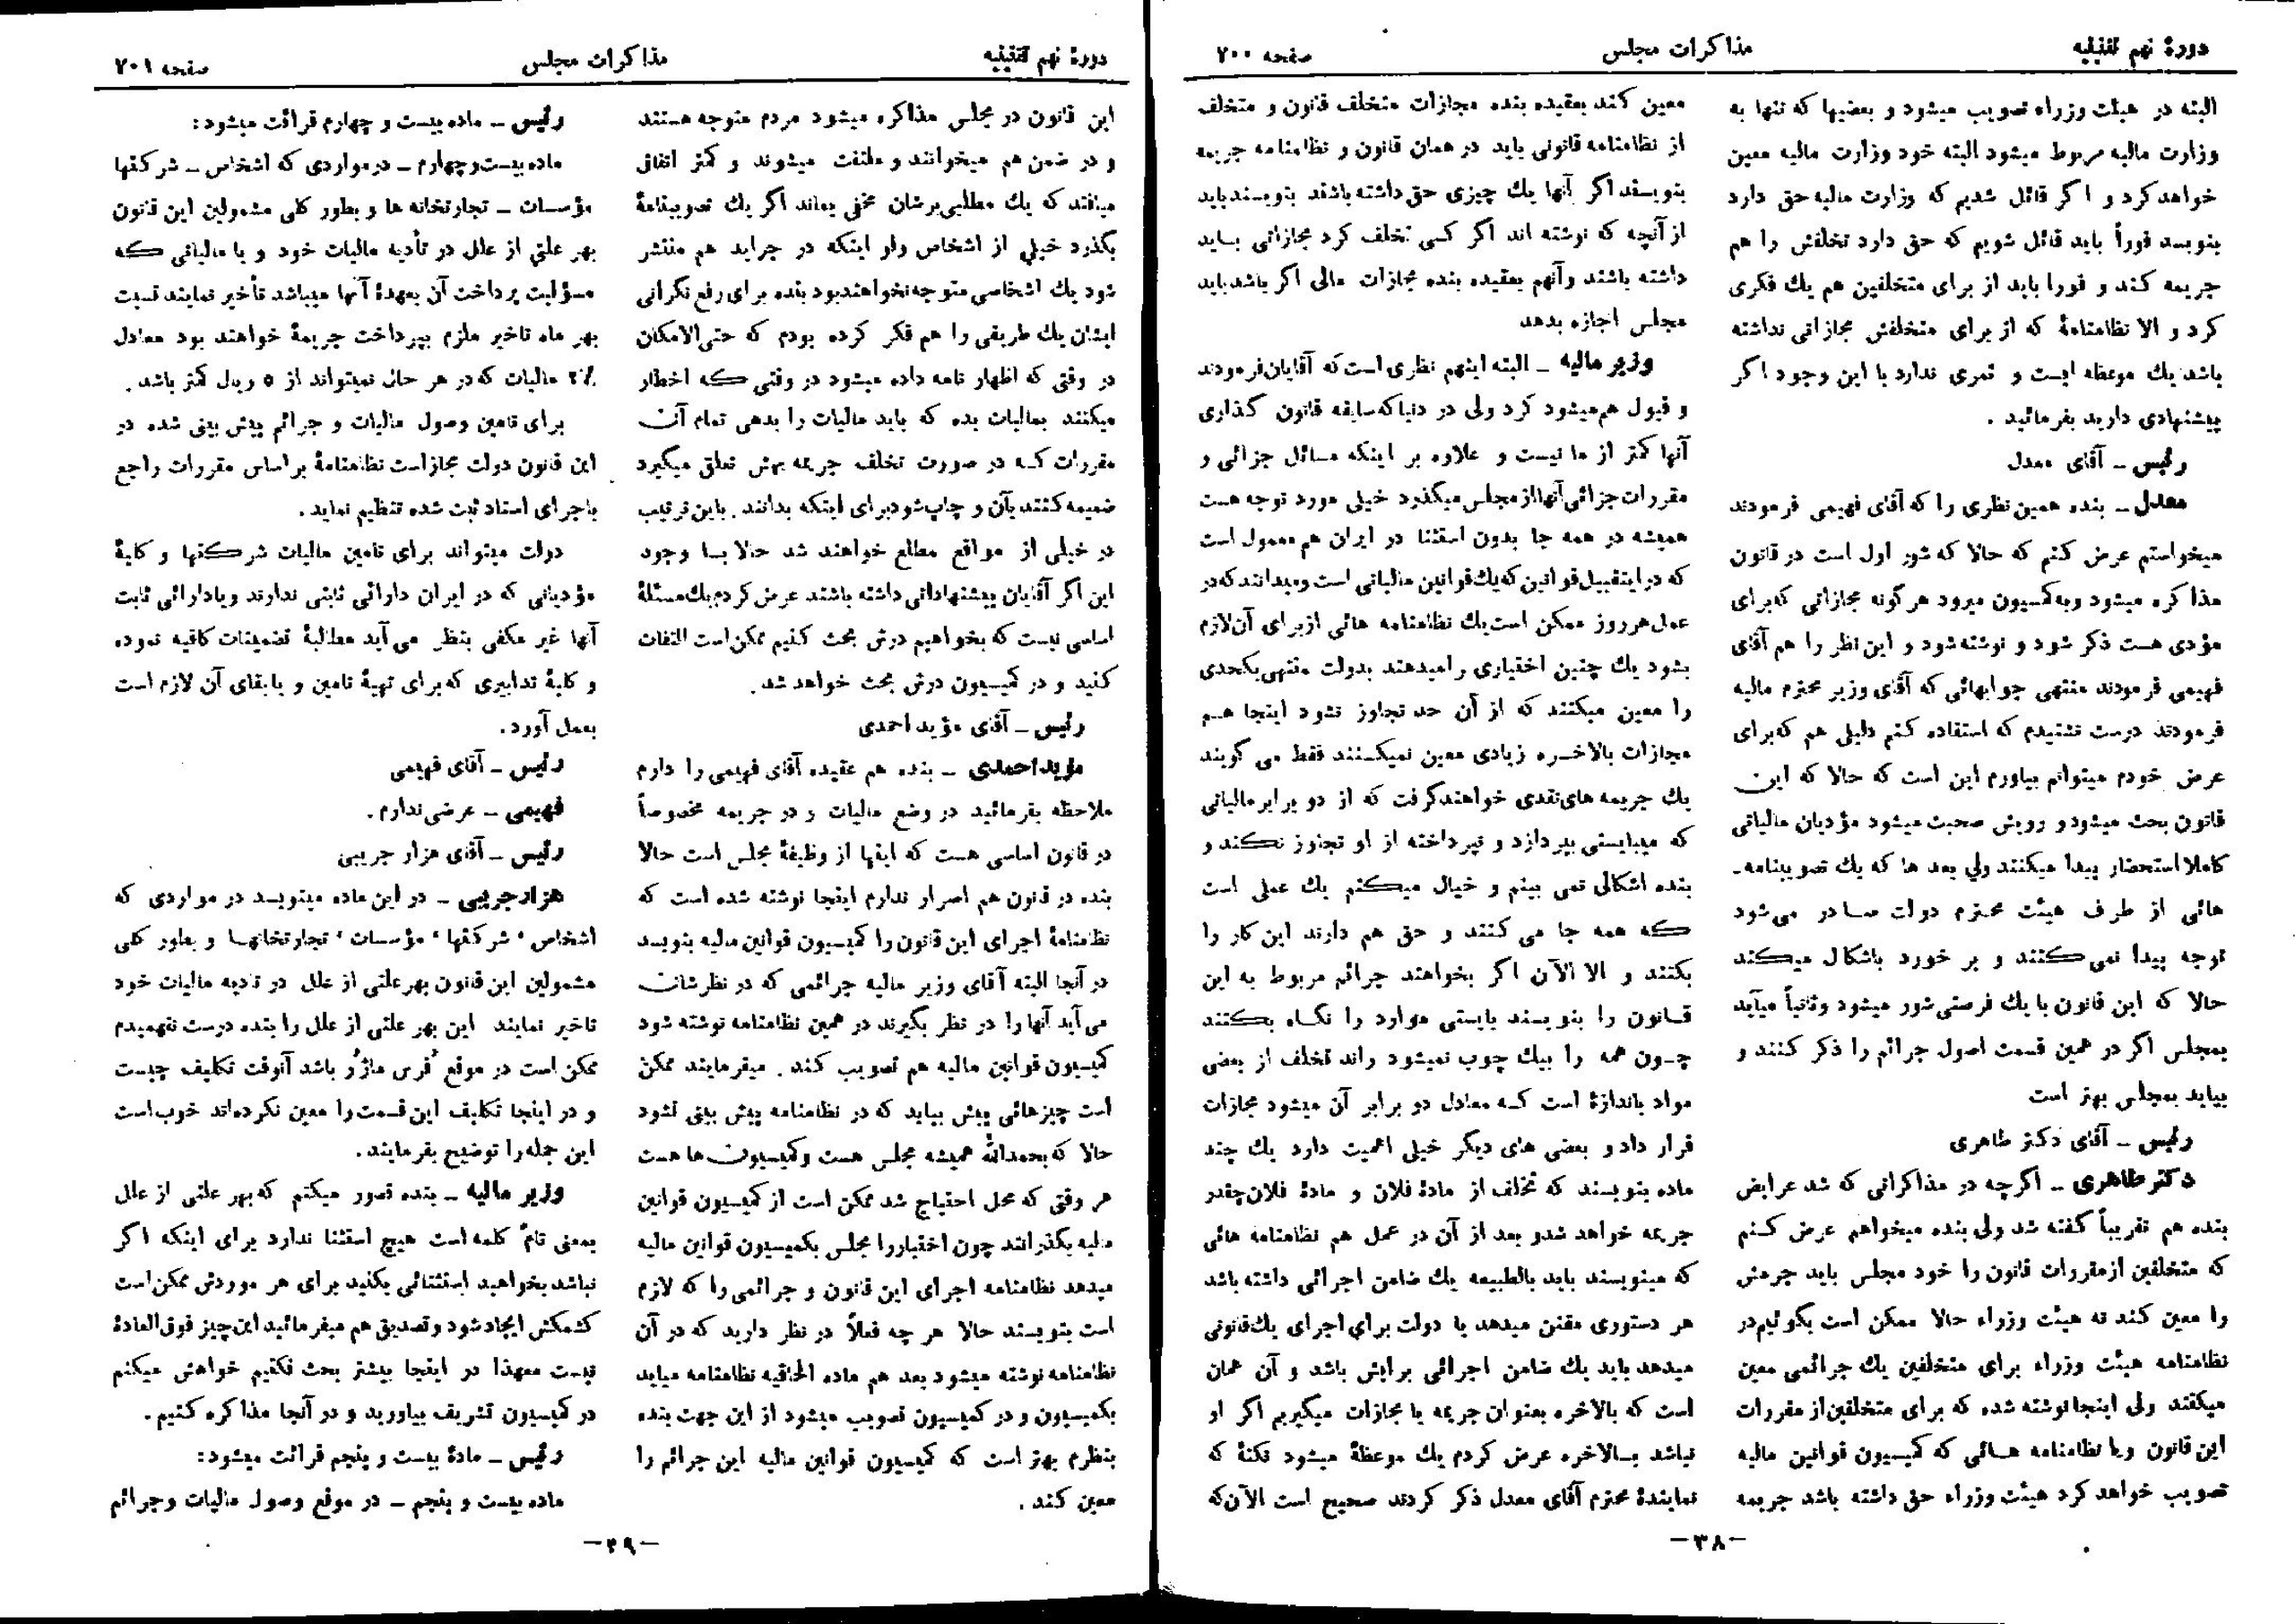 دورهٔ نهم تقنینیه
مذاکرات مجلس
صفحه ۷۰۰
البته در هیئت وزراء تصویب میشود و بعضیها که تنها به
وزارت مالیه مربوط میشود البته خود وزارت مالیه معین
خواهد کرد و اگر قائل شدیم که وزارت مالیه حق دارد
بنویسد فوراً باید قائل شویم که حق دارد تخلفش را هم
جریمه کند و فورا باید از برای متخلفین هم یك فکری
کرد و الا نظامنامهٔ که از برای متخلفش مجازاتی نداشته
باشد یك موعظه ایست و ثمری ندارد با این وجود اگر
پیشنهادی دارید بفرمائید .
رئیس ـ آقای معدل
معدل ـ بنده همین نظری را که آقای فهیمی فرمودند
میخواستم عرض کنم که حالا که شور اول است در قانون
مذاکره میشود و به کمسیون میرود هر گونه مجازاتی که برای
مؤدی هست ذکر شود و نوشته شود و این نظر را هم آقای
فهیمی فرمودند منتهی جوابهائی که آقای وزیر محترم مالیه
فرمودند درست نشنیدم که استفاده کنم دلیلی هم که برای
عرض خودم میتوانم بیاورم این است که حالا که این
قانون بحث میشود و رویش صحبت میشود مؤدیان مالیاتی
کاملا استحضار پیدا میکنند ولی بعد ها که یك تصویبنامه‌ـ
هائی از طرف هیئت محترم دولت صادر می‌شود
توجه پیدا نمی کنند و بر خورد باشکال میکند
حالا که این قانون با یك فرصتی شور میشود و ثانیاً میآید
بمجلس اگر در همین قسمت اصول جرائم را ذکر کنند و
بیاید بمجلس بهتر است
رئیس ـ آقای دکتر طاهری
دکتر طاهری ـ اگرچه در مذاکراتی که شد عرایض
بنده هم تقریباً گفته شد ولی بنده میخواهم عرض کنم
که متخلفین از مقررات قانون را خود مجلس باید جرمش
را معین کند نه هیئت وزراء حالا ممکن است بگوئیم در
نظامنامه هیئت وزراء برای متخلفین یك جرائمی معین
میکنند ولی اینجا نوشته شده که برای متخلفین از مقررات
این قانون و یا نظامنامه هائی که کمیسیون قوانین مالیه
تصویب خواهد کرد هیئت وزراء حق داشته باشد جریمه
معین کند بعقیده بنده مجازات متخلف قانون و متخلف
از نظامنامه قانونی باید در همان قانون و نظامنامه جریمه
بنویسند اگر آنها یك چیزی حق داشته باشند بنویسند باید
از آنچه که نوشته اند اگر کسی تخلف کرد مجازاتی باید
داشته باشند و آنهم بعقیده بنده مجازات مالی اگر باشد باید
مجلس اجازه بدهد
وزیر مالیه ـ البته اینهم نظری است که آقایان فرمودند
و قبول هم میشود کرد ولی در دنیا که سابقه قانون گذاری
آنها کمتر از ما نیست و علاوه بر اینکه مسائل جزائی و
مقررات جزائی آنها از مجلس میگذرد خیلی مورد توجه هست
همیشه در همه جا بدون استثنا در ایران هم معمول است
که در اینقبیل قوانین که یك قوانین مالیاتی است و میدانند که در
عمل هر روز ممکن است یك نظامنامه هائی از برای آن لازم
بشود یك چنین اختیاری را میدهند بدولت منتهی یکحدی
را معین میکنند که از آن حد تجاوز نشود اینجا هم
مجازات بالاخره زیادی معین نمیکنند فقط می گویند
یك جریمه های نقدی خواهند گرفت که از دو برابر مالیاتی
که میبایستی بپردازد و نپرداخته از او تجاوز نکند و
بنده اشکالی نمی بینم و خیال میکنم یك عملی است
که همه جا می کنند و حق هم دارند این کار را
بکنند و الا الآن اگر بخواهند جرائم مربوط به این
قانون را بنویسند بایستی موارد را نگاه بکنند
چون همه را بیك چوب نمیشود راند تخلف از بعضی
مواد باندازهٔ است که معادل دو برابر آن میشود مجازات
قرار داد و بعضی های دیگر خیلی اهمیت دارد یك چند
ماده بنویسند که تخلف از مادهٔ فلان و مادهٔ فلان چقدر
جریمه خواهد شد و بعد از آن در عمل هم نظامنامه هائی
که مینویسند باید بالطبیعه یك ضامن اجرائی داشته باشد
هر دستوری مقنن میدهد یا دولت برای اجرای یك قانونی
میدهد باید یك ضامن اجرائی برایش باشد و آن همان
است که بالاخره بعنوان جریمه یا مجازات میگیریم اگر او
نباشد بالاخره عرض کردم یك موعظهٔ میشود نکتهٔ که
نمایندهٔ محترم آقای معدل ذکر کردند صحیح است الآن که
ـ۳۸ـ
دورهٔ نهم تقنینیه
مذاکرات مجلس
صفحه ۷۰۱
این قانون در مجلس مذاکره میشود مردم متوجه هستند
و در ضمن هم میخوانند و ملتفت میشوند و کمتر اتفاق
میافتد که یك مطلبی برشان مخفی بماند اگر یك تصویبنامهٔ
بگذرد خیلی از اشخاص ولو اینکه در جراید هم منتشر
شود یك اشخاصی متوجه نخواهند بود بنده برای رفع نگرانی
ایشان یك طریقی را هم فکر کرده بودم که حتی‌الامکان
در وقتی که اظهار نامه داده میشود در وقتی که اخطار
میکنند بمالیات بده که باید مالیات را بدهی تمام آن
مقررات که در صورت تخلف جریمه بهش تعلق میگیرد
ضمیمه کنند بآن و چاپ شود برای اینکه بدانند . باین ترتیب
در خیلی از مواقع مطلع خواهند شد حالا با وجود
این اگر آقایان پیشنهاداتی داشته باشند عرض کردم یك مسئلهٔ
اساسی نیست که بخواهیم درش بحث کنیم ممکن است التفات
کنید و در کمیسیون درش بحث خواهد شد .
رئیس ـ آقای مؤید احمدی
مؤید احمدی ـ بنده هم عقیده آقای فهیمی را دارم
ملاحظه بفرمائید در وضع مالیات و در جریمه مخصوصاً
در قانون اساسی هست که اینها از وظیفهٔ مجلس است حالا
بنده در قانون هم اصرار ندارم اینجا نوشته شده است که
نظامنامهٔ اجرای این قانون را کمیسیون قوانین مالیه بنویسد
در آنجا البته آقای وزیر مالیه جرائمی که در نظرشان
می آید آنها را در نظر بگیرند در همین نظامنامه نوشته شود
کمیسیون قوانین مالیه هم تصویب کند . میفرمایند ممکن
است چیزهائی پیش بیاید که در نظامنامه پیش بینی نشود
حالا که بحمدالله همیشه مجلس هست و کمیسیون ها هست
هر وقتی که محل احتیاج شد ممکن است از کمیسیون قوانین
مالیه بگذرانند چون اختیار را مجلس بکمیسیون قوانین مالیه
میدهد نظامنامه اجرای این قانون و جرائمی را که لازم
است بنویسند حالا هر چه فعلاً در نظر دارید که در آن
نظامنامه نوشته میشود بعد هم ماده الحاقیه نظامنامه میاید
بکمیسیون و در کمیسیون تصویب میشود از این جهت بنده
بنظرم بهتر است که کمیسیون قوانین مالیه این جرائم را
معین کند .
رئیس ـ ماده بیست و چهارم قرائت میشود :
ماده بیست و چهارم ـ در مواردی که اشخاص ـ شرکتها
مؤسسات ـ تجارتخانه ها و بطور کلی مشمولین این قانون
بهر علتی از علل در تأدیه مالیات خود و یا مالیاتی که
مسؤلیت پرداخت آن بعهدهٔ آنها میباشد تأخیر نمایند نسبت
بهر ماه تاخیر ملزم بپرداخت جریمهٔ خواهند بود معادل
٪۲ مالیات که در هر حال نمیتواند از ۵ ریال کمتر باشد .
برای تامین وصول مالیات و جرائم پیش بینی شده در
این قانون دولت مجاز است نظامنامهٔ بر اساس مقررات راجع
باجرای اسناد ثبت شده تنظیم نماید .
دولت میتواند برای تامین مالیات شرکتها و کلیهٔ
مؤدیانی که در ایران دارائی ثابتی ندارند و یا دارائی ثابت
آنها غیر مکفی بنظر می آید مطالبهٔ تضمینات کافیه نموده
و کلیهٔ تدابیری که برای تهیهٔ تامین و یا بقای آن لازم است
بعمل آورد .
رئیس ـ آقای فهیمی
فهیمی ـ عرضی ندارم .
رئیس ـ آقای هزار جریبی
هزارجریبی ـ در این ماده مینویسد در مواردی که
اشخاص ، شرکتها ، مؤسسات ، تجارتخانها و بطور کلی
مشمولین این قانون بهر علتی از علل در تادیه مالیات خود
تاخیر نمایند این بهر علتی از علل را بنده درست نفهمیدم
ممکن است در موقع فُرس ماژوُر باشد آنوقت تکلیف چیست
و در اینجا تکلیف این قسمت را معین نکرده‌اند خوب است
این جمله را توضیح بفرمایند .
وزیر مالیه ـ بنده تصور میکنم که بهر علتی از علل
بمعنی تامّ کلمه است هیچ استثنا ندارد برای اینکه اگر
نباشد بخواهید استثنائی بکنید برای هر موردش ممکن است
کشمکش ایجاد شود و تصدیق هم میفرمائید این چیز فوق العادهٔ
نیست معهذا در اینجا بیشتر بحث نکنیم خواهش میکنم
در کمیسیون تشریف بیاورید و در آنجا مذاکره کنیم .
رئیس ـ مادهٔ بیست و پنجم قرائت میشود :
ماده بیست و پنجم ـ در موقع وصول مالیات و جرائم
ـ۳۹ـ